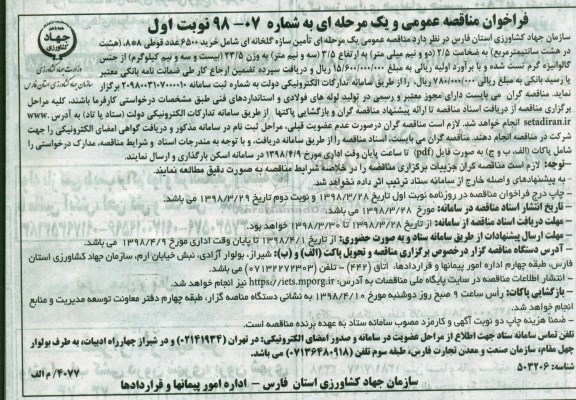 فراخوان مناقصه عمومی و یک مرحله ای به شماره ۰۷–۹۸ نوبت اول
جهاد کشاورزی
سازمان جهاد کشاورزی استان فارس در نظر دارد مناقصه عمومی یک مرحله ای تأمین سازه گلخانه ای شامل خرید ۶۵۰۰ عدد قوطی ۸*۸، (هشت
در هشت سانتیمترمربع) به ضخامت ۲/۵ (دو و نیم میلی متر) به ارتفاع ۳/۵ (سه و نیم متر) به وزن ۲۳/۵ (بیست و سه و نیم کیلوگرم) از جنس
گالوانیزه گرم تست شده و با برآورد اولیه ریالی به مبلغ ۱۵/۶۰۰/۰۰۰/۰۰۰ ریال و دریافت سپرده تضمین ارجاع کار طی ضمانت نامه بانکی معتبر
یا رسید بانکی به مبلغ ریالی ۷۸۰/۰۰۰/۰۰۰ ریال را از طریق سامانه تدارکات الکترونیکی دولت به شماره ثبت سامانه ۲۰۹۸۰۰۳۱۰۷۰۰۰۰۱۰ برگزار
نماید. مناقصه گران می بایست دارای مجوز معتبر و رسمی در تولید لوله های فولادی و استانداردهای فنی طبق مشخصات درخواستی کارفرما باشند، کلیه مراحل
برگزاری مناقصه از دریافت اسناد مناقصه تا ارائه پیشنهاد مناقصه گران و بازگشایی پاکتها از طریق سامانه تدارکات الکترونیکی دولت (ستاد یا تاد) به آدرس www.
setadiran.ir انجام خواهد شد. لازم است مناقصه گران درصورت عدم عضویت قبلی، مراحل ثبت نام در سامانه مذکور و دریافت گواهی امضای الکترونیکی را جهت
شرکت در مناقصه انجام دهند. مناقصه گران می بایست، اسناد مناقصه را از طریق سامانه دریافت، و با توجه به مندرجات اسناد و شرایط مناقصه، مدارک درخواستی را
شامل پاکات (الف، ب و ج) به صورت فایل (pdf) تا ساعت پایان وقت اداری مورخ ۱۳۹۸/۴/۹ در سامانه اسکن بارگذاری و ارسال نمایند.
–توجه: لازم است مناقصه گران جزییات برگزاری مناقصه را در خلاصه شرایط مناقصه به صورت دقیق مطالعه نمایند.
– به پیشنهادهای واصله خارج از سامانه ستاد ترتیب اثر داده نخواهد شد.
– چاپ درج فراخوان مناقصه در روزنامه نوبت اول تاریخ ۱۳۹۸/۳/۲۸ و نوبت دوم تاریخ ۱۳۹۸/۳/۲۹ می باشد.
– تاریخ انتشار اسناد مناقصه در سامانه: مورخ ۱۳۹۸/۳/۲۸ می باشد.
– مهلت دریافت اسناد مناقصه از سامانه: از تاریخ ۱۳۹۸/۳/۲۸ تا ۱۳۹۸/۳/۳۰ خواهد بود.
– مهلت ارسال پیشنهادات از طریق سامانه ستاد و به صورت حضوری: از تاریخ ۱۳۹۸/۴/۱ تا پایان وقت اداری مورخ ۱۳۹۸/۴/۹ می باشد.
– آدرس دستگاه مناقصه گزار درخصوص برگزاری مناقصه و تحویل پاکت (الف) و (ب): شیراز، بولوار آزادی، نبش خیابان ارم، سازمان جهاد کشاورزی استان
فارس، طبقه چهارم اداره امور پیمانها و قراردادها، اتاق (۴۴۲) – تلفن (۰۷۱۳۲۲۷۲۳۰۳) می باشد.
– انتشار اطلاعات مناقصه در سایت پایگاه ملی مناقصات به آدرس: https://iets.mporg.ir نیز انجام خواهد شد.
– بازگشایی پاکات: رأس ساعت ۹ صبح روز دوشنبه مورخ ۱۳۹۸/۴/۱۰ به نشانی دستگاه مناقصه گزار، طبقه چهارم دفتر معاونت توسعه مدیریت و منابع
انجام خواهد شد.
– ضمناً هزینه چاپ دو نوبت آگهی و کارمزد مصوب سامانه ستاد به عهده برنده مناقصه است.
تلفن تماس سامانه ستاد جهت اطلاع از مراحل عضویت در سامانه و صدور امضای الکترونیکی: در تهران (۰۲۱۴۱۹۳۴) و در شیراز چهارراه ادبیات، به طرف بولوار
چهل مقام، سازمان صنعت و معدن تجارت فارس، طبقه سوم تلفن (۰۷۱۳۶۴۸۰۹۱۸) می باشد.
شناسه: ۵۰۳۲۰۶
۴۰۷۷/ م الف
سازمان جهاد کشاورزی استان فارس – اداره امور پیمانها و قراردادها